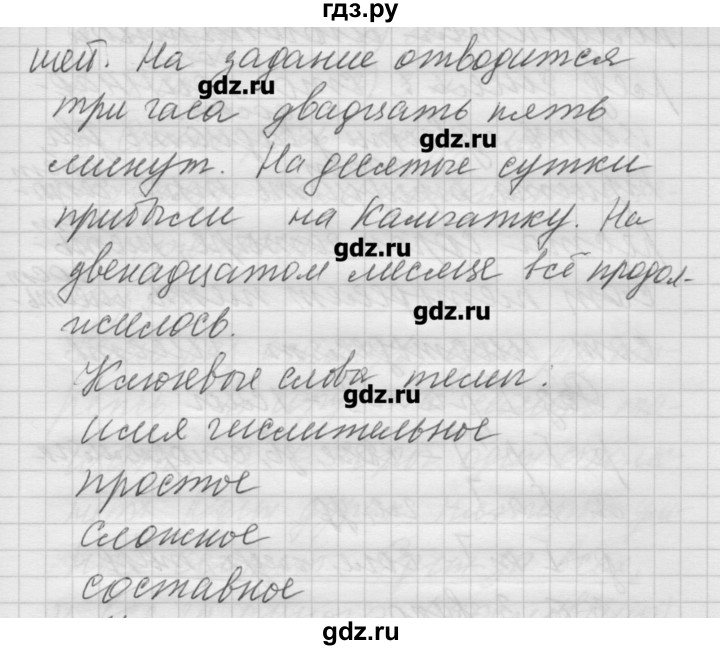 гдз.ру
шей. На задание отводится
gdz.ru
три часа двадцать пять
gdz.ru
минут. На десятые сутки
прибыли на Камчатку. На
gdz.ru
двенадцатом месяце всё продол-
gdz.ru
жилось.
Ключевые слова темы:
gdz.ru
имя числительное
простое
сложное
составное
gdz.ru